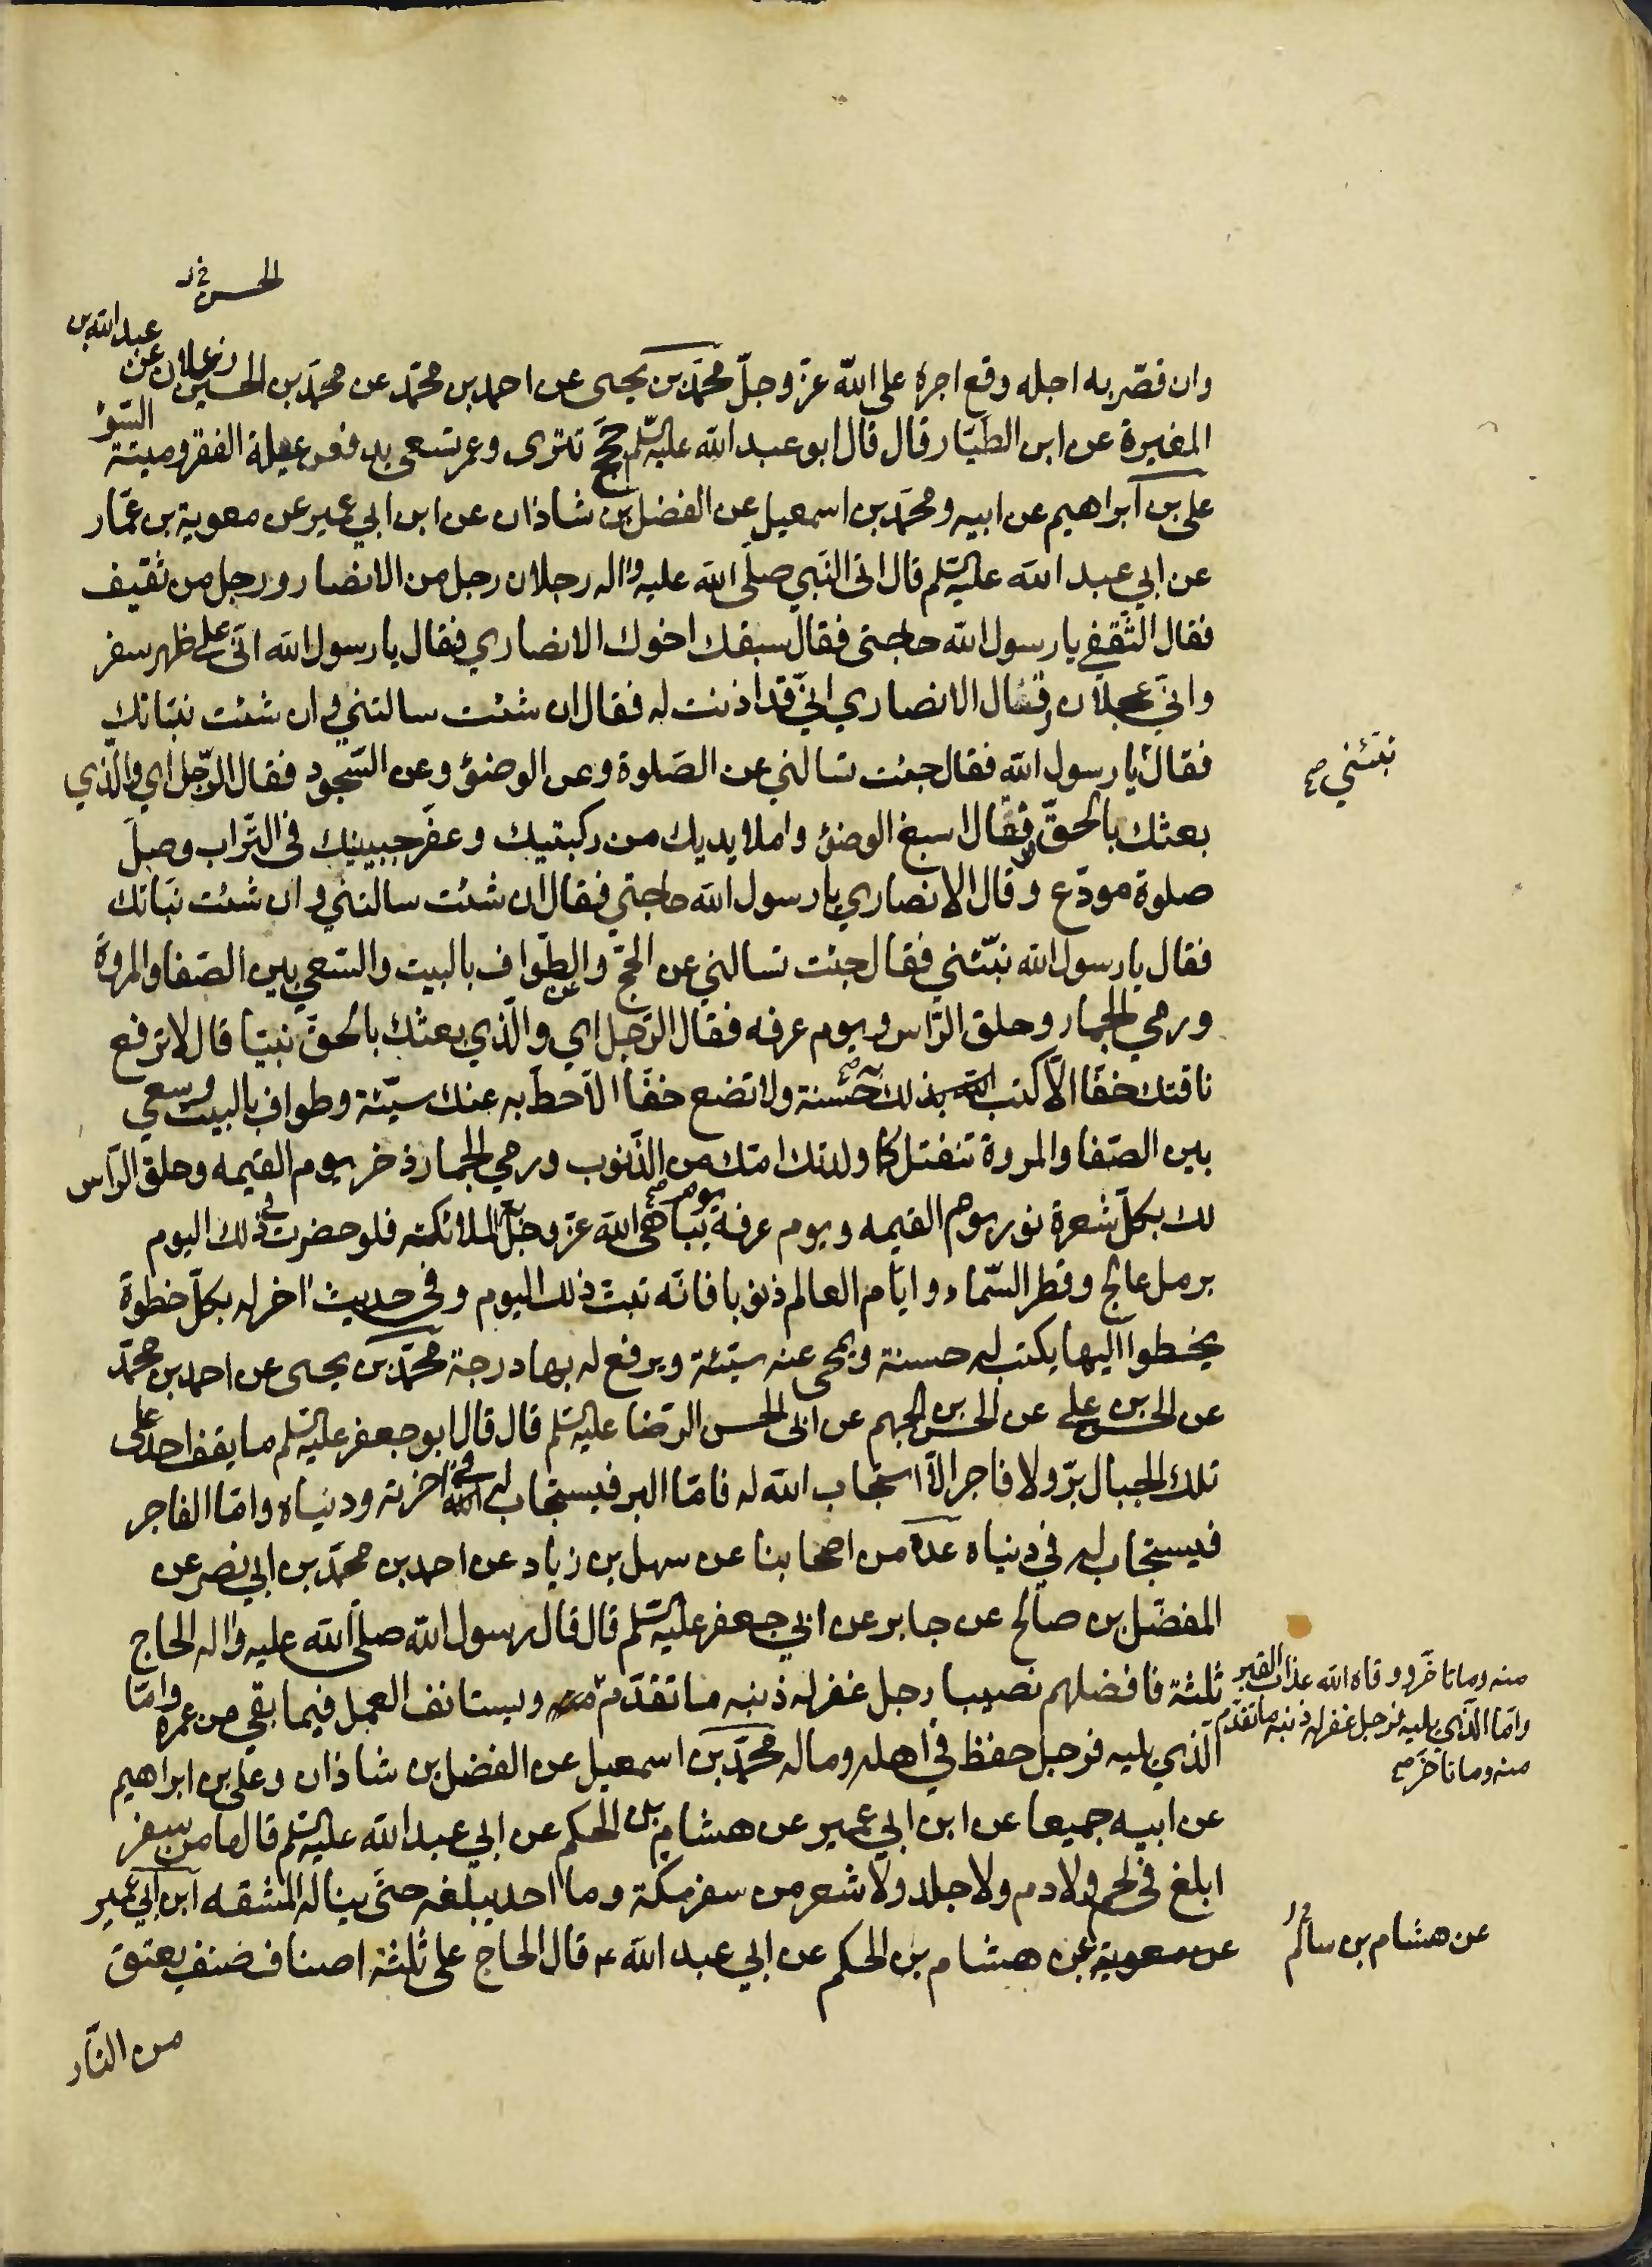 الحسين خ ر
وان قصر به اجله وقع اجره على الله عزّ وجلّ محمّد بن يحيى عن احمد بن محمّد عن محمّد بن الحسن زعلان عن عبد الله بن
المغيرة عن ابن الطيّار قال قال ابو عبد الله عليه السّلم حجج تترى وعمر تسعى يدفعن عيلة الفقر وميتة السّوء
على بن ابراهيم عن ابيه ومحمّد بن اسمعيل عن الفضل بن شاذان عن ابن ابي عمير عن معوية بن عمّار
عن ابي عبد الله عليه السّلم قال اتى النّبي صلّى الله عليه واله رجلان رجل من الانصار ورجل من ثقيف
فقال الثّقفي يا رسول الله حاجتى فقال سبقك اخوك الانصاري فقال يا رسول الله انّى على ظهر سفر
وانّي عجلان وقال الانصاري انّي قد اذنت له فقال ان شئت سالتني وان شئت نبّاتك
فقال يا رسول الله فقال جئت تسالني عن الصّلوة وعن الوضوء وعن السّجود فقال الرّجل اي والّذي
نبّئني صح
بعثك بالحقّ فقال اسبغ الوضوء واملا يديك من ركبتيك وعفّر جبينيك فى التّراب وصلّ
صلوة مودّع وقال الانصاري يا رسول الله حاجتي فقال ان شئت سالتني وان شئت نبّاتك
فقال يا رسول الله نبّئني فقال جئت تسالني عن الحجّ وعن الطّواف بالبيت والسّعي بين الصّفا والمروة
ورمي الجمار وحلق الرّاس ويوم عرفه فقال الرّجل اي والّذي بعثك بالحقّ نبيّا قال لا ترفع
ناقتك خفّا الّا كتب الله بذلك حسنة ولا تضع خفّا الّا حطّ به عنك سيّئة وطواف بالبيت وسعي
بين الصّفا والمروة تنفتل كما ولدتك امّك من الذّنوب ورمي الجمار ذخر يوم القيمه وحلق الرّاس
لك بكلّ شعرة نور يوم القيمه ويوم عرفة يوم يباهى الله عزّ وجلّ به الملائكة فلو حضرت في ذلك اليوم
برمل عالج وقطر السّماء وايّام العالم ذنوبا فانّه تبتّ ذلك اليوم وفى حديث اخر له بكلّ خطوة
يخطوا اليها يكتب له حسنة ويمحى عنه سيّئة ويرفع له بها درجة محمّد بن يحيى عن احمد بن محمّد
عن الحسن بن علي عن الحسن بن الجهم عن ابى الحسن الرّضا عليه السّلم قال قال ابو جعفر عليه السّلم ما يقف احد على
تلك الجبال برّ ولا فاجر الّا استجاب الله له فامّا البر فيستجاب له في اخرته ودنياه وامّا الفاجر
فيستجاب له في دنياه عدة من اصحابنا عن سهل بن زياد عن احمد بن محمّد بن ابي نصر عن
المفضّل بن صالح عن جابر عن ابي جعفر عليه السّلم قال قال رسول الله صلّى الله عليه واله الحاج
ثلثة فافضلهم نصيبا رجل غفر له ذنبه ما تقدّم منه ويستانف العمل فيما بقي من عمره وامّا
منه وما تاخّر ووقاه الله عذاب القبر
وامّا الّذي يليه فرجل غفر له ذنبه ما تقدّم
منه وما تاخّر صح
الّذي يليه فرجل حفظ في اهله وماله محمّد بن اسمعيل عن الفضل بن شاذان وعلى بن ابراهيم
عن ابيه جميعا عن ابن ابي عمير عن هشام بن الحكم عن ابي عبد الله عليه السّلم قال ما من سفر
ابلغ فى لحم ولا دم ولا جلد ولا شعر من سفر مكّة وما احد يبلغه حتّى يناله المشقه ابن ابي عمير
عن معوية عن هشام بن الحكم عن ابي عبد الله ع قال الحاج على ثلثة اصناف صنف يعتق
عن هشام بن سالم
من النّار